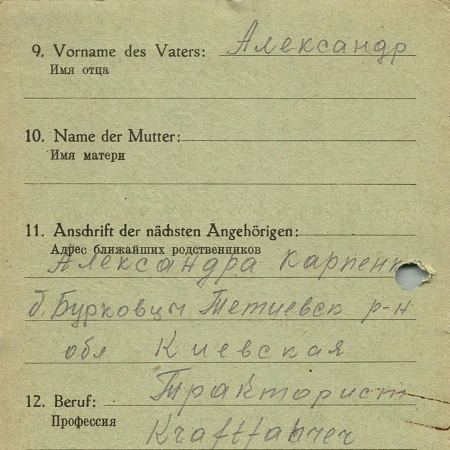 9. Vorname des Vaters: Александр
Имя отца
10. Name der Mutter:
Имя матери
11. Anschrift der nächsten Angehörigen:
Адрес ближайших родственников
Александра Карпенк
д. Бурковцы Тетиевск р-н
обл Киевская
12. Beruf: Тракторист
Профессия Kraftfahrer